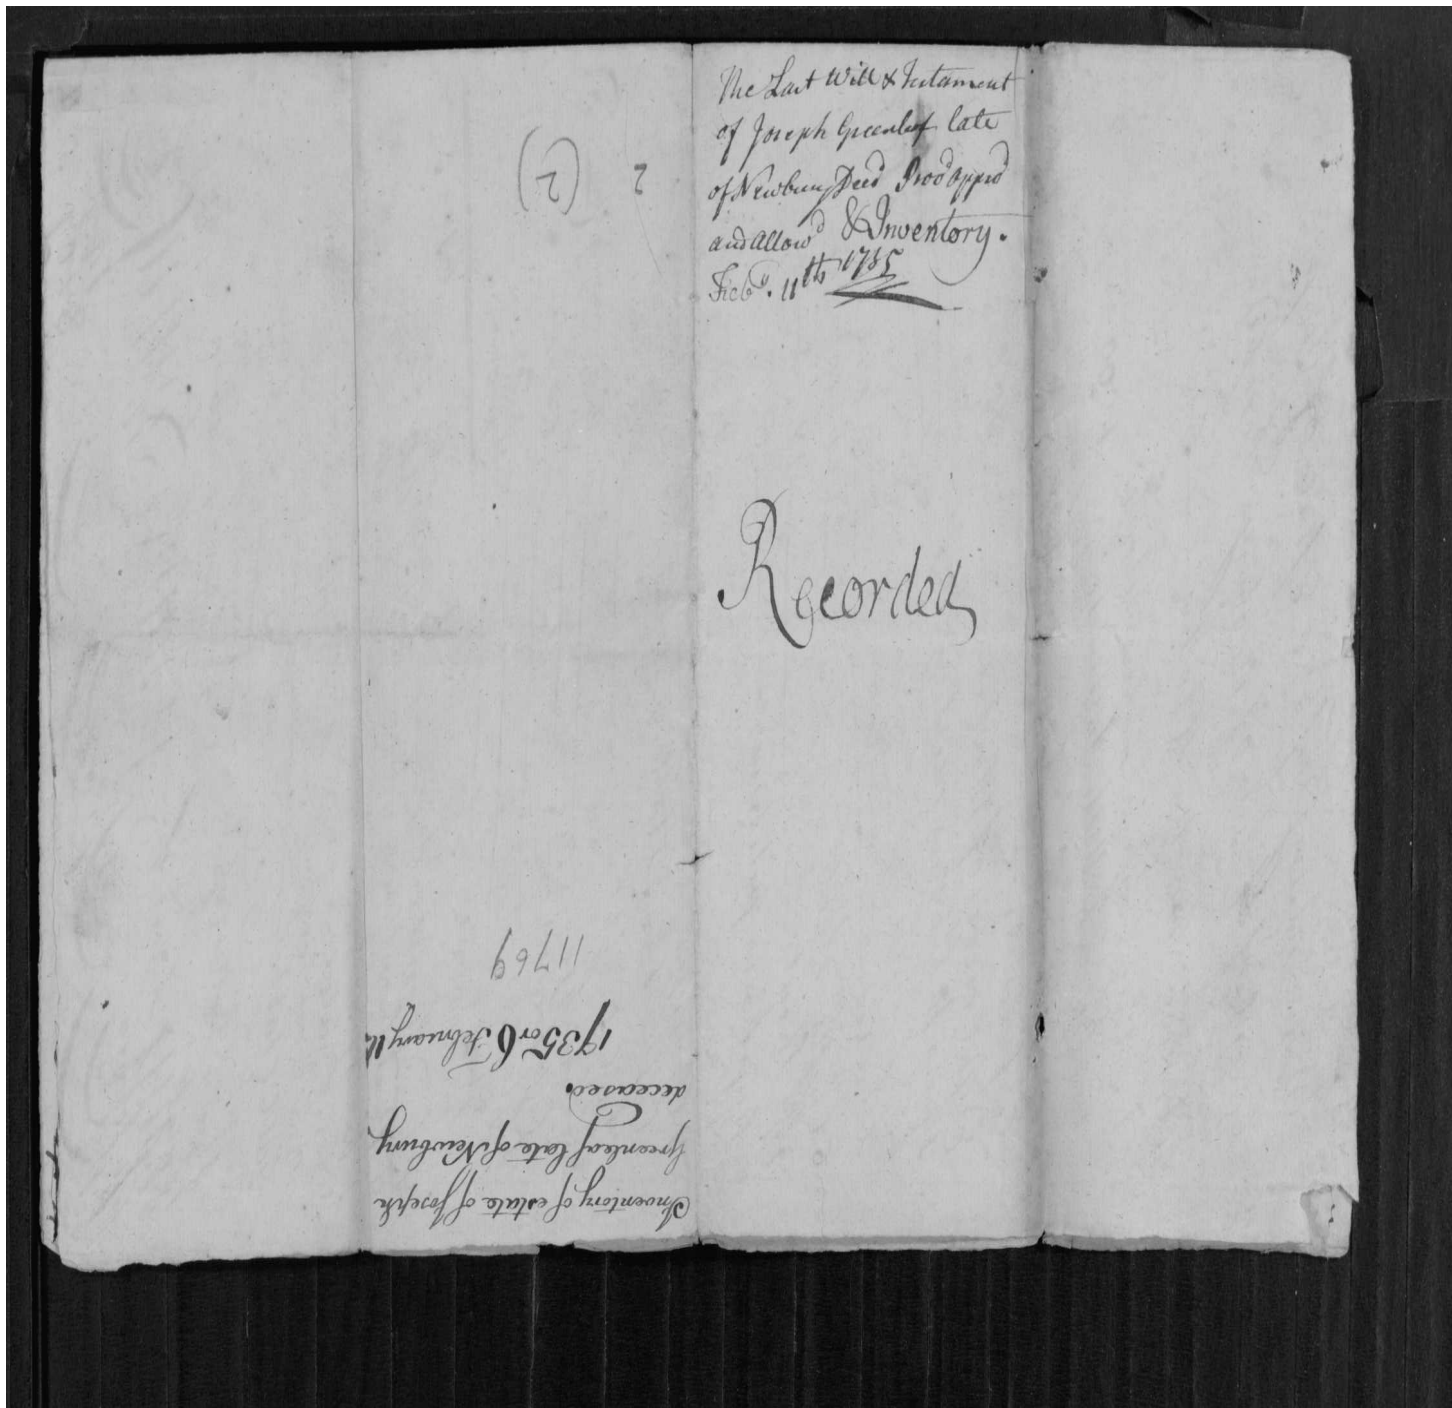 The Last Will & Testament
of Joseph Greenleaf late
of Newbury Decd Prov'd Appro'd
and Allow'd & Inventory.
Feb'y. 11th 1735
Recorded
2 (2)
Inventory of estate of Joseph
Greenleaf late of Newbury
deceased.
1735 or 6 February 11
11769